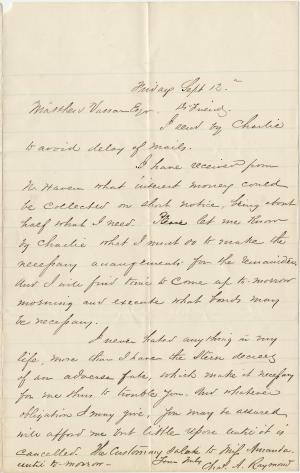 Friday Sept 12.
Matthew Vassar Esqr. Dr Friend,
I send by Charlie
to avoid delay of mails.
I have received from
N. Haven what interest money could
be collected on short notice, being about
half what I need. Please let me know
by Charlie what I must do to make the
necessary arrangements for the remainder
And I will find time to come up to-morrow
morning and execute what bonds may
be necessary.
I never hated anything in my
life, more than I have the stern decrees
of an adverse fate, which make it necessary
for me thus to trouble you. And whatever
obligation I may give, you may be assured
will afford me but little repose until it is
cancelled. The customary salute to Miss Amanda.
until to-morrow Yours truly
Chas. A. Raymond